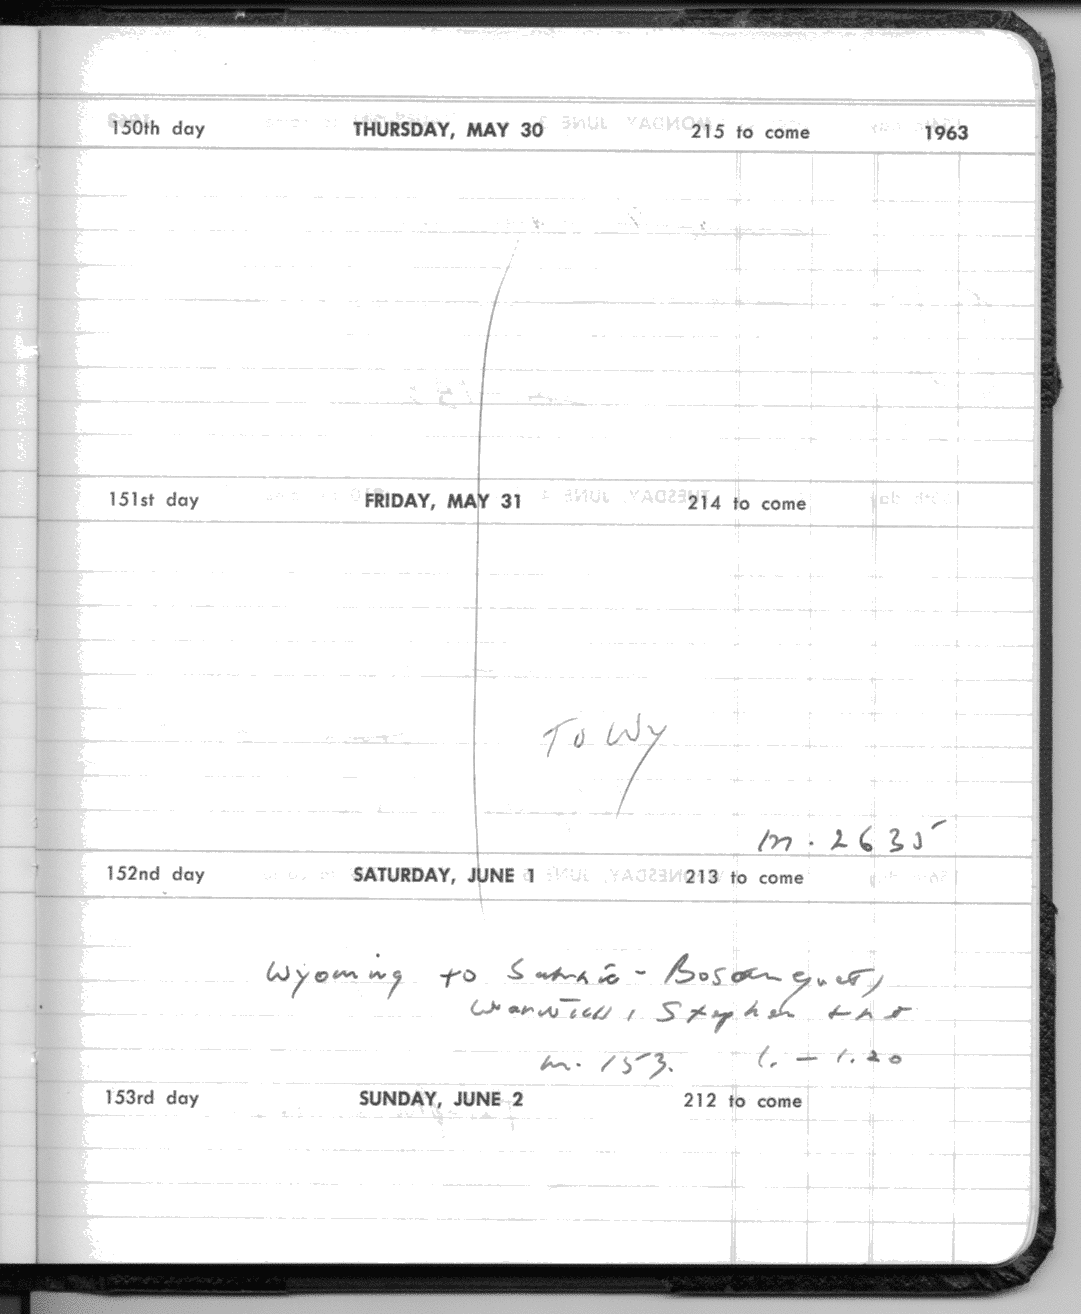 150th day THURSDAY, MAY 30 215 to come 1963
151st day FRIDAY, MAY 31 214 to come
To Wy
m. 2635
152nd day SATURDAY, JUNE 1 213 to come
Wyoming to Sarnia - Bosanquet,
Warwick, Stephen
m. 153. l. - 1.20
153rd day SUNDAY, JUNE 2 212 to come